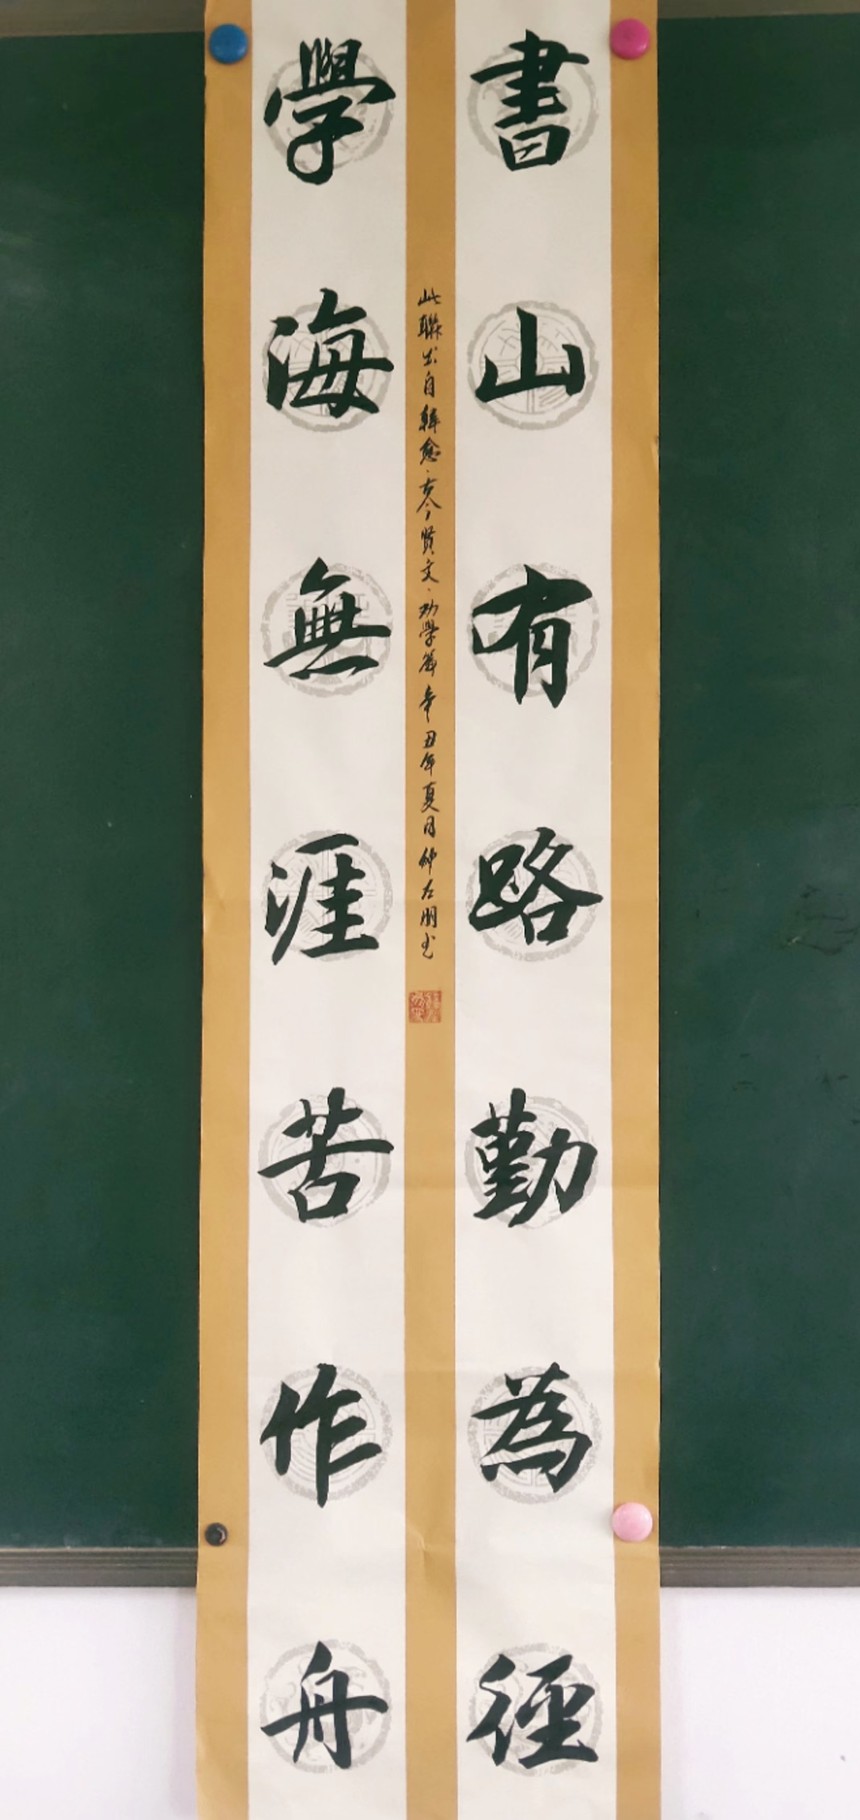 書山有路勤為徑
學海無涯苦作舟
此聯出自韓愈·古今賢文·劝學篇 辛丑年夏月仲左朋书